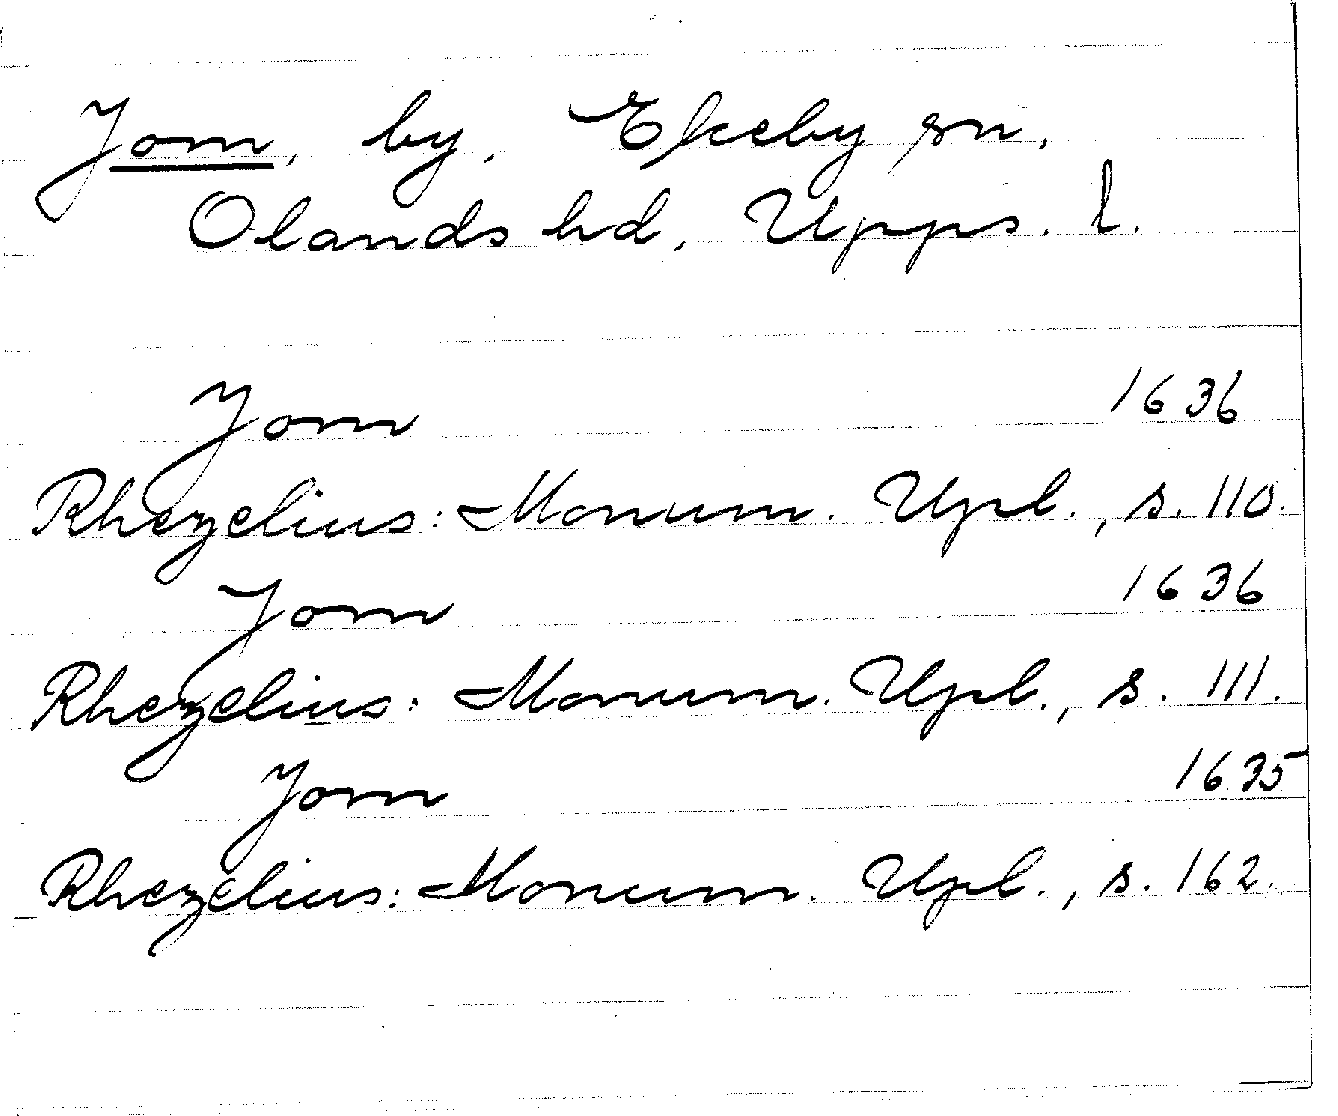 Jom, by, Ekeby sn,
Olands hd, Upps. l.
Jom 1636
Rhezelius: Monum. Upl., s. 110.
Jom 1636
Rhezelius: Monum. Upl., s. 111.
Jom 1635
Rhezelius: Monum. Upl., s. 162.